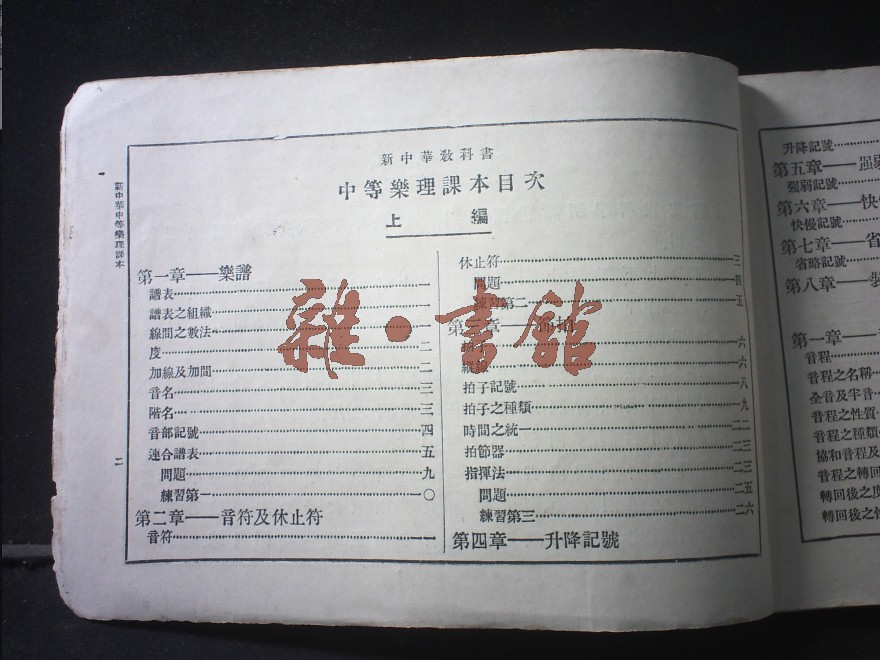 新中華教科書
中等樂理課本目次
上　編
第一章——樂譜
譜表……一
譜表之組織……一
線間之數法……一
度……二
加線及加間……二
音名……三
階名……三
音部記號……四
連合譜表……五
問題……九
練習第一……一〇
第二章——音符及休止符
音符……一一
休止符……三
問題……四
練習第二……五
第三章——
……六
……六
拍子記號……八
拍子之種類……九
時間之統一……二二
拍節器……二三
指揮法……二三
問題……二五
練習第三……二六
第四章——升降記號
雜·書館
新中華中等樂理課本
二
升降記號……
第五章——强
强弱記號……
第六章——快
快慢記號……
第七章——省
省略記號……
第八章——裝
第一章——
音程……
音程之名稱
全音及半音
音程之性質
音程之種類
協和音程及
音程之轉回
轉回後之度
轉回後之性